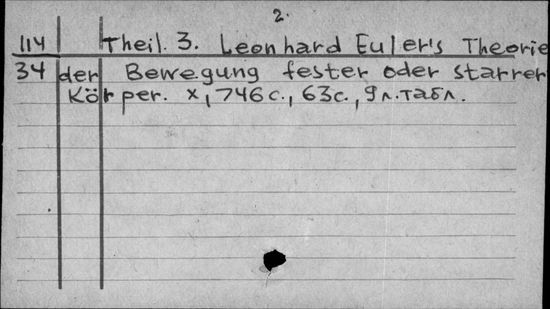 2.
114 Theil. 3. Leonhard Euler's Theorie
34 der Bewegung fester oder starrer
Körper. x, 746 с., 63 с., 9 л. табл.